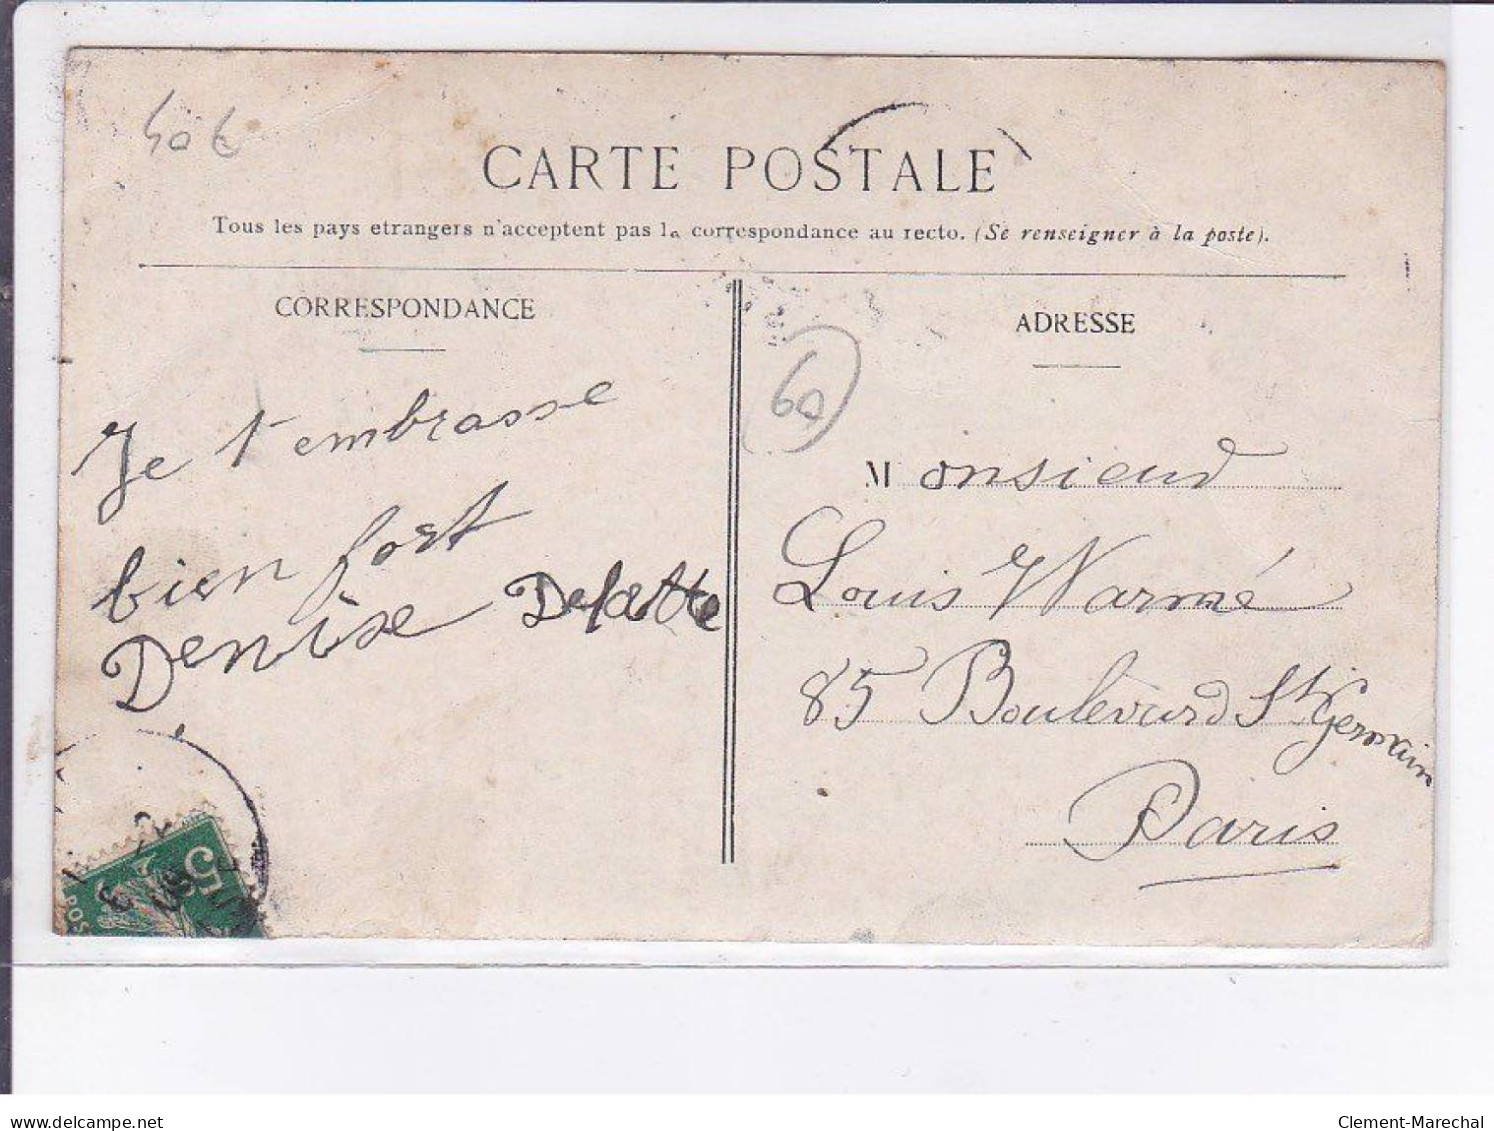 40€
CARTE POSTALE
Tous les pays etrangers n'acceptent pas la correspondance au recto. (Se renseigner à la poste).
CORRESPONDANCE
Je t'embrasse
bien fort
Denise Delatte
60
ADRESSE
Monsieur
Louis Warmé
85 Boulevard St Germain
Paris
5
POS
delcampe.net
Clement-Marechal